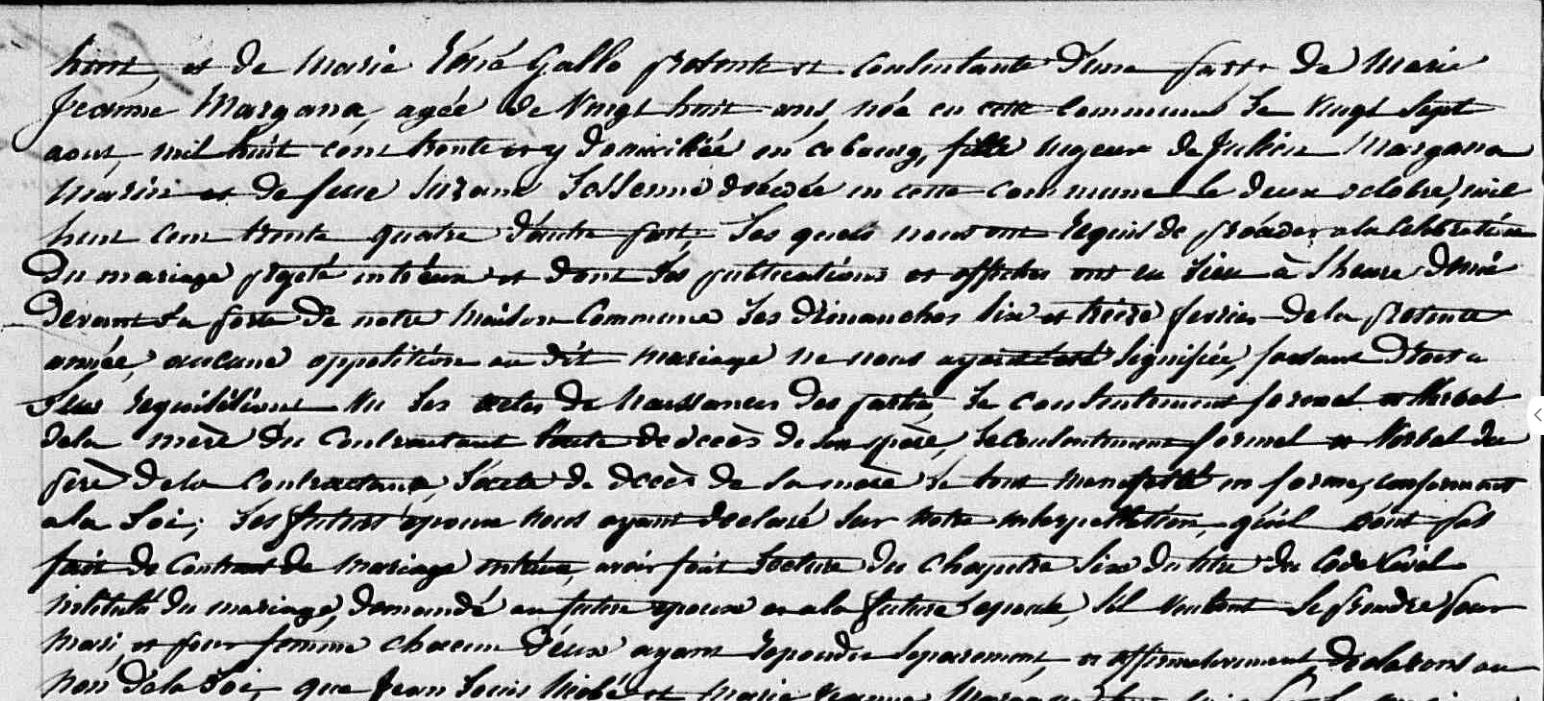 huit, et de Marie Réné Gallo présente et consentante d'une part. De Marie
Jeanne Margana, agée de vingt huit ans, née en cette commune le vingt sept
aout mil huit cent trente et y domiciliée en ce bourg, fille majeure de Julien Margana
Marin et de feue Suzane décédée en cette commune le deux octobre, mil
huit cent trente quatre d'autre part, Les quels nous ont requis de procéder a la celebration
du mariage projeté entr'eux et dont les publications et affiches ont eu lieu à l'heure de midi
devant la porte de notre Maison Commune les dimanches six et treize fevrier de la présente
année, aucune oppotition au dit mariage ne nous ayant été signifiée, faisant droit a
leur requisitions Vu les actes de Naissances des partie, le consentement formel et verbal
de la mère du Contractant l'acte de décès de son père, le consentement formel et verbal du
père de la Contractante, l'acte de décès de sa mère le tout en forme, conforment
a la Loi; Les futurs époux nous ayant declaré sur notre interpellation, qu'il n'ont pas
fait de Contrat de mariage entr'eux, avoir fait lecture du chapitre six du titre du Code Civil
intitulé du mariage, demandé au futur epoux et a la future epouse, s'il veulent se prendre pour
mari, et pour femme chacun d'eux ayant repondu separement, et affirmativement, declarons au
nom de la Loi, que Jean Louis et Marie Jeanne